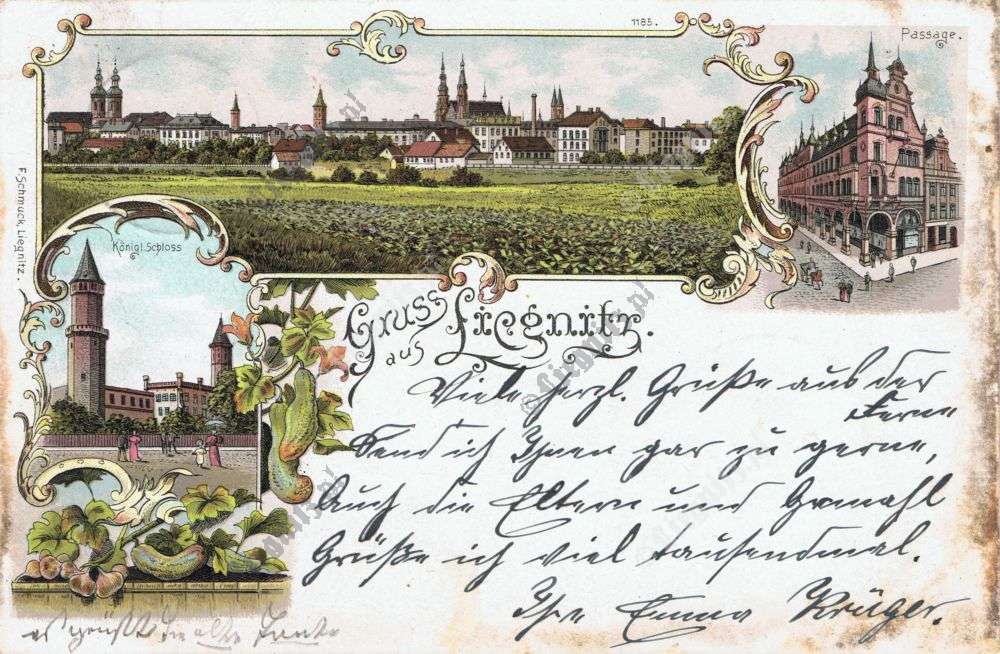 1185.
Passage.
F. Schmuck, Liegnitz.
Königl. Schloss
Gruss aus Liegnitz.
Viele herzl. Grüße aus der
Ferne
Send ich Ihnen gar zu gerne,
Auch die Eltern und Gemahl
Grüße ich viel tausendmal.
Ihre Emma Krüger.
es grüßt die alte Tante